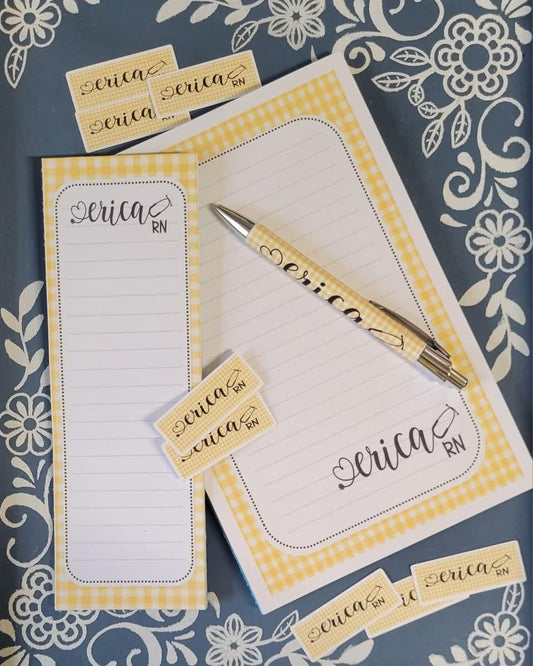 erica
erica
RN
erica
erica
RN
erica
erica
RN
erica
RN
erica
RN
erica
RN
erica
RN
erica
RN